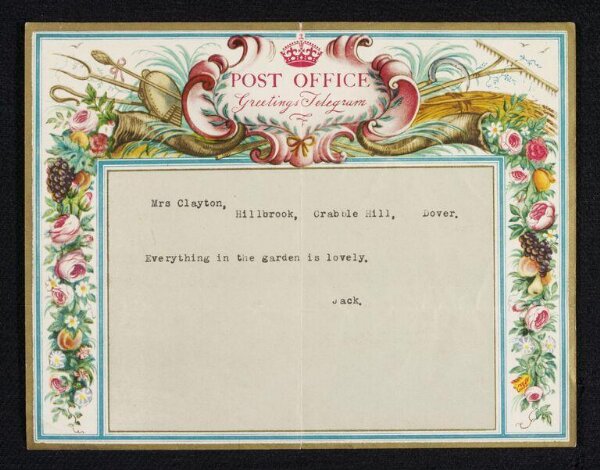 POST OFFICE
Greetings Telegram
Mrs Clayton,
Hillbrook, Crabble Hill, Dover.
Everything in the garden is lovely.
Jack.